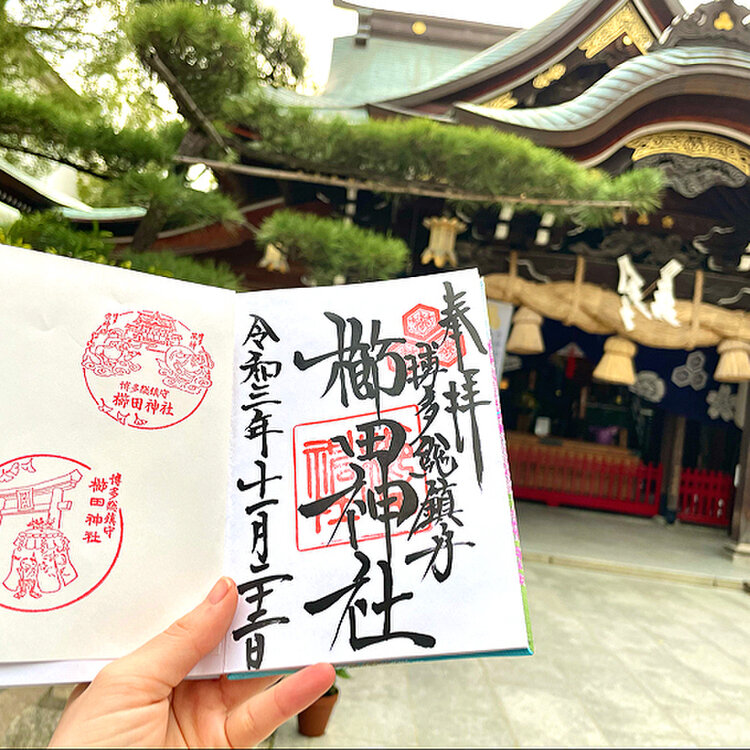 奉拝
博多総鎮守
櫛田神社
令和三年十一月二十三日
博多総鎮守
櫛田神社
博多総鎮守
櫛田神社